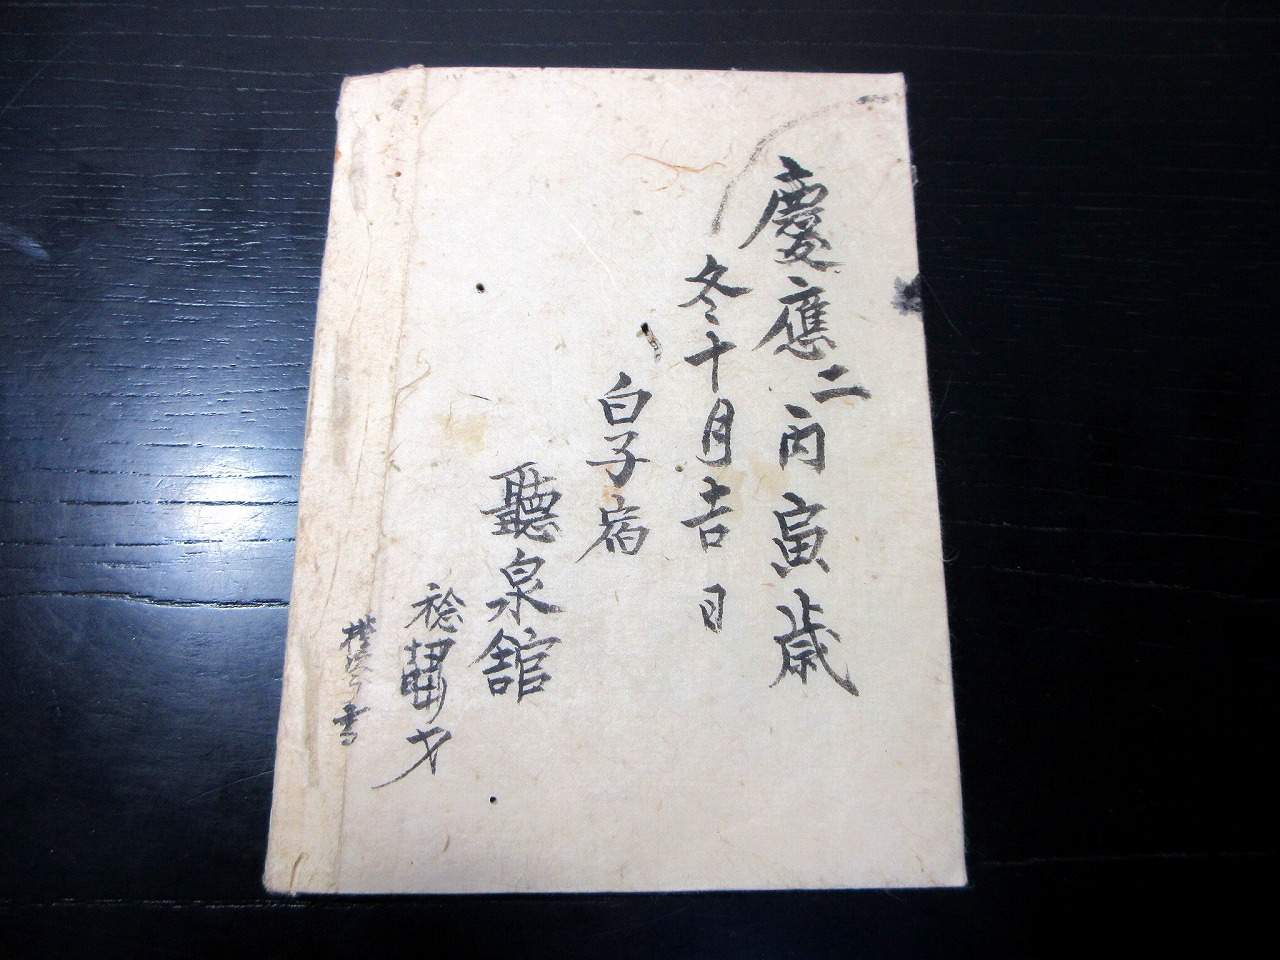 慶應二丙寅歳
冬十月吉日
白子宿
聽泉舘
稔
書